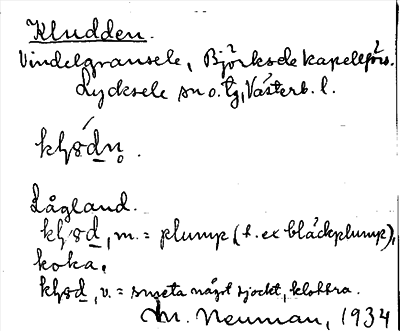 Kludden.
Vindelgransele, Björksele kapellförs.
Lycksele sn o. tg, Västerb. l.
Lågland.
m. = plump (t. ex bläckplump),
koka.
v. = smeta något tjockt, klottra.
M. Neuman, 1934